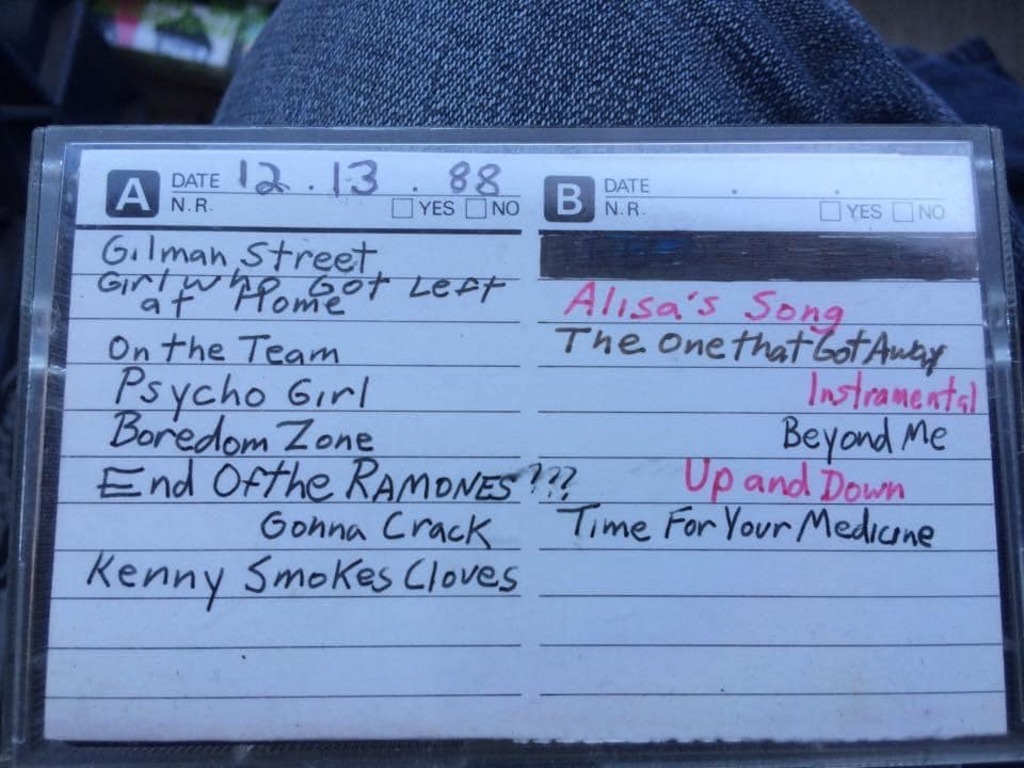 A DATE 12.13.88
N.R. YES NO
Gilman Street
Girl Who Got Left
at Home
On the Team
Psycho Girl
Boredom Zone
End Of the RAMONES???
Gonna Crack
Kenny Smokes Cloves
B DATE . .
N.R. YES NO
Alisa's Song
The One that Got Away
Instramental
Beyond Me
Up and Down
Time For Your Medicine